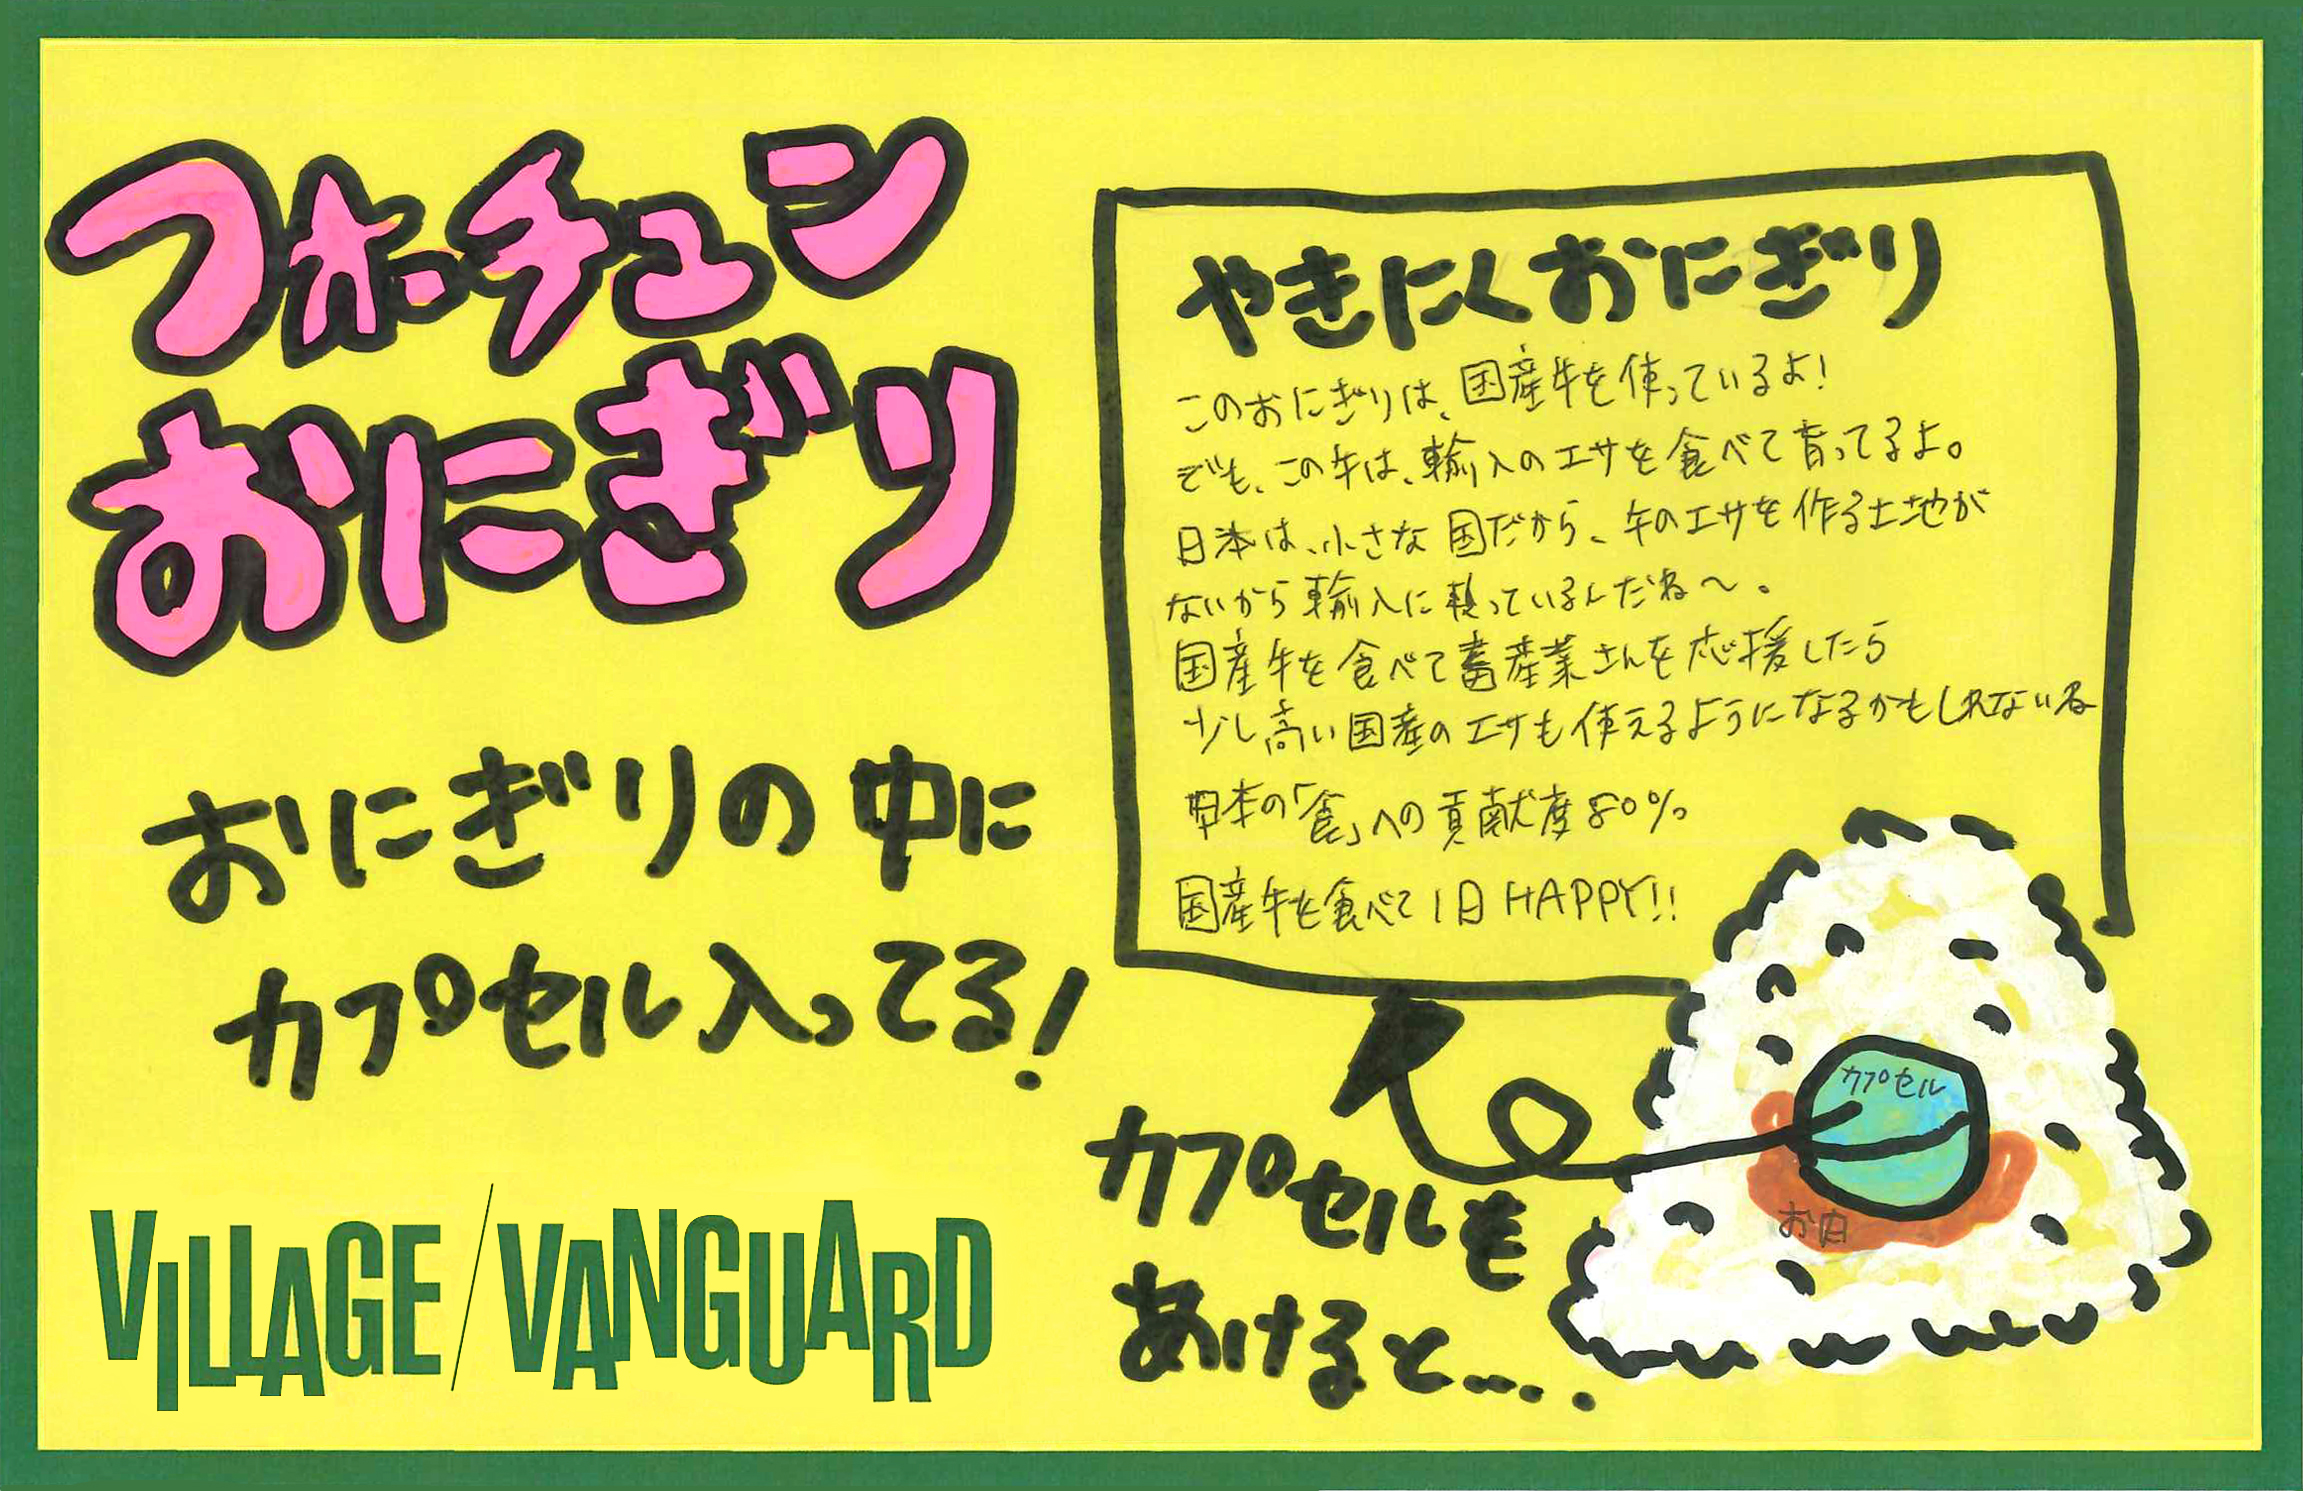 フォーチュン
おにぎり
おにぎりの中に
カプセル入ってる!
VILLAGE/VANGUARD
やきにくおにぎり
このおにぎりは、国産牛を使っているよ!
でも、この牛は、輸入のエサを食べて育ってるよ。
日本は、小さな国だから、牛のエサを作る土地が
ないから輸入に頼っているんだね〜。
国産牛を食べて畜産業さんを応援したら
少し高い国産のエサも使えるようになるかもしれないね
日本の「食」への貢献度80%
国産牛を食べて1日HAPPY!!
カプセル
お肉
カプセルも
あけると....